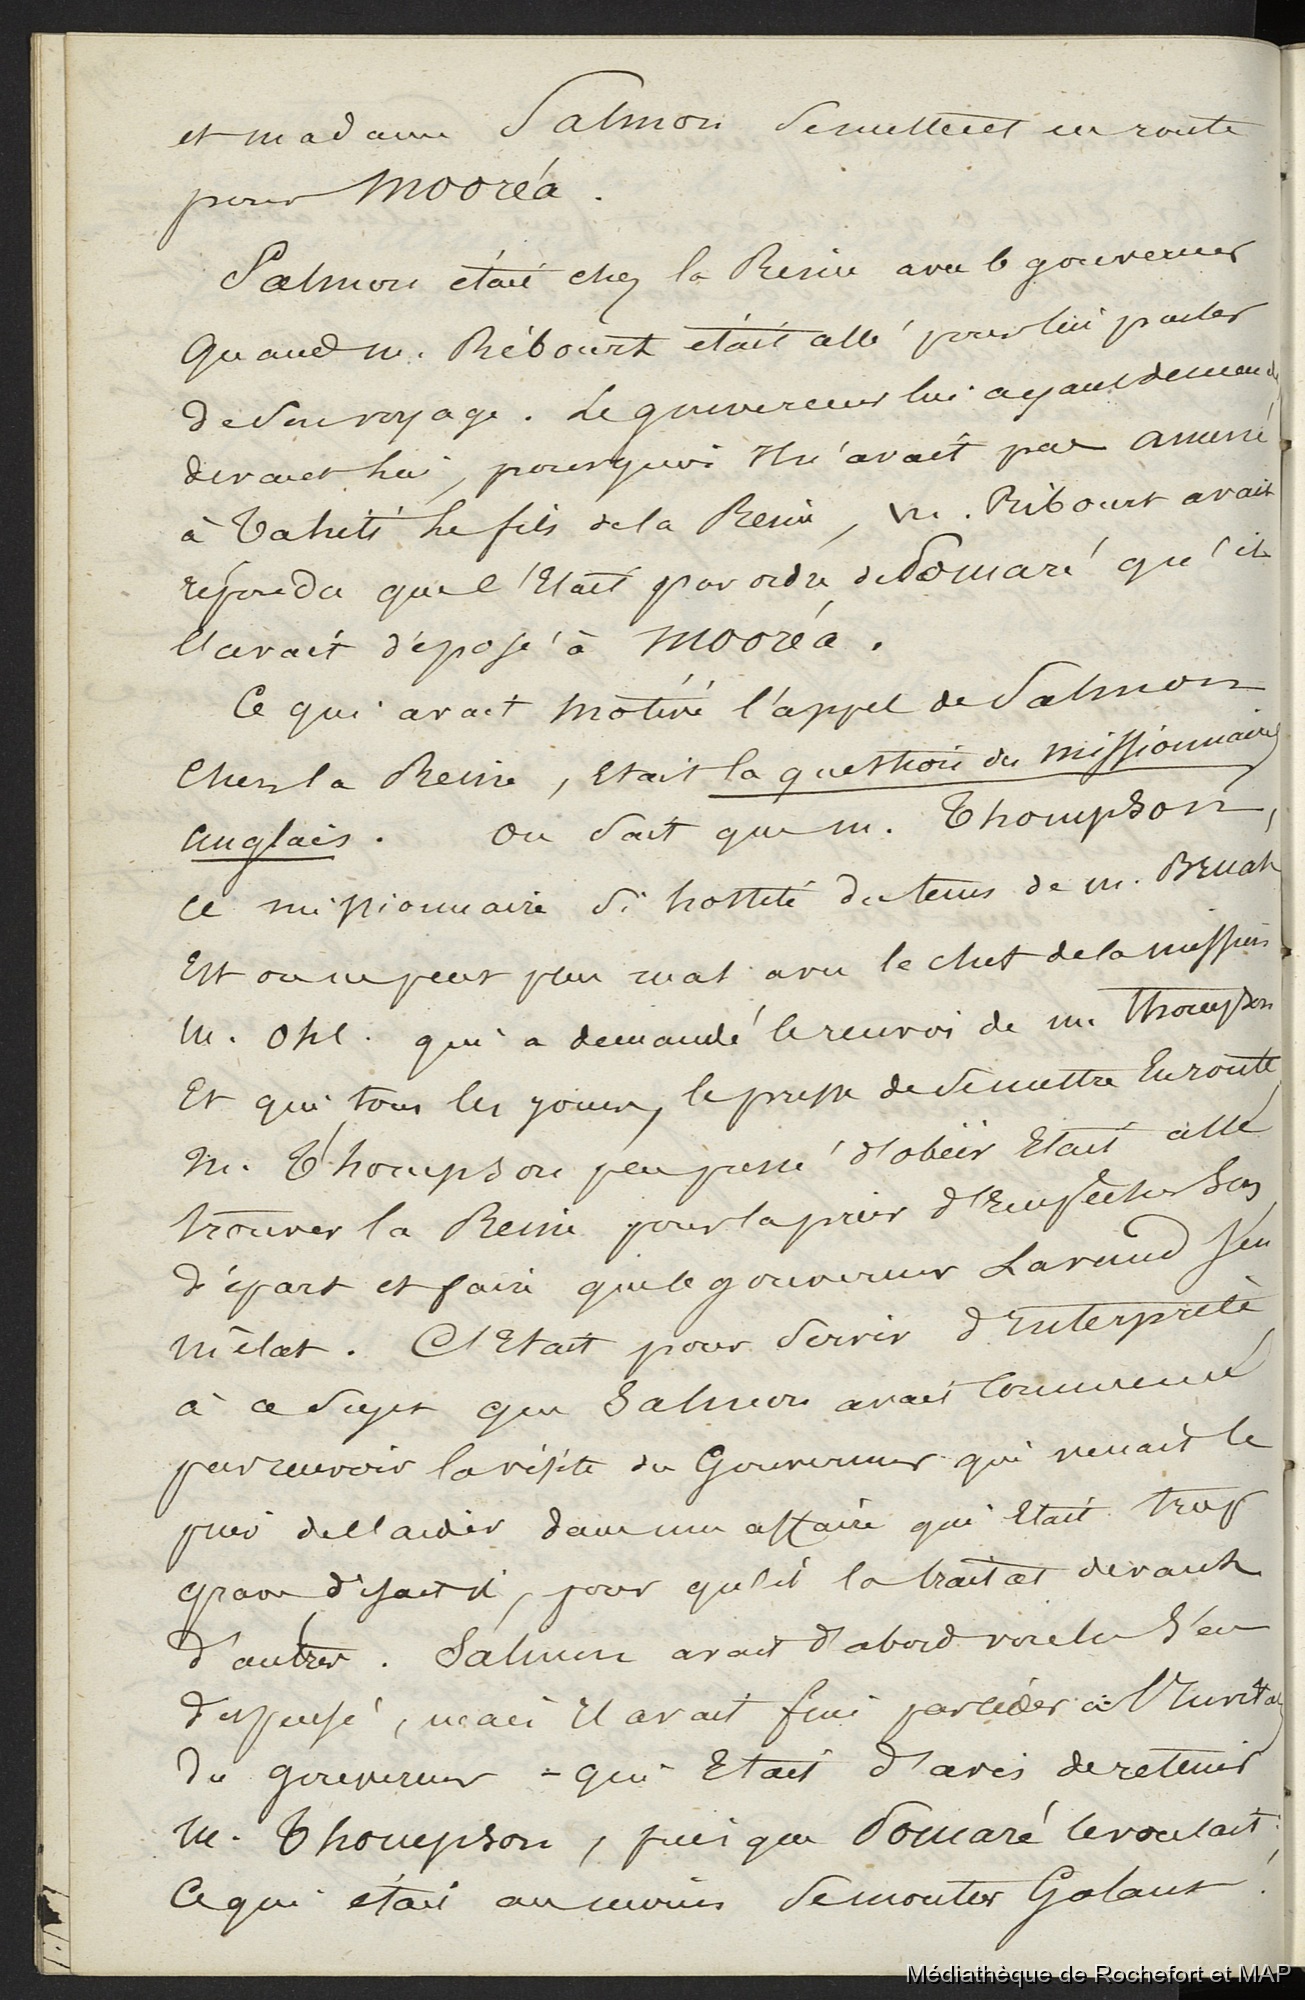 et madame Salmon se mettent en route
pour Mooréa.
Salmon était chez la Reine avec le gouverneur
quand m. Ribourt était allé pour lui parler
de son voyage. Le gouverneur lui ayant demandé
devant lui, pourquoi Il n'avait pas amené
à Tahiti le fils de la Reine, m. Ribourt avait
répondu que c'Etait par ordre de Pomaré qu'il
l'avait déposé à Mooréa.
Ce qui avait motivé l'appel de Salmon
chez la Reine, Etait la question des missionnaires
anglais. On sait que m. Thompson,
ce missionnaire si hostile du tems de m. Bruat
Est on ne peut plus mal avec le chef de la mission
m. Ohl. qui a demandé le renvoi de m. Thompson
Et qui tous les jours, le presse de se mettre En route
m. Thompson peu pressé d'obéir Etait allé
trouver la Reine pour la prier d'Empêcher son
départ et faire que le gouverneur Lavaud s'en
mêlat. C'Etait pour servir d'Interprète
à ce sujet que Salmon avait commencé
par recevoir la visite du Gouverneur qui venait le
prier de l'aider dans une affaire qui Etait trop
grave disait il, pour qu'il la traitat devant
d'autres. Salmon avait d'abord voulu s'en
dispensé, mais Il avait fini par céder à l'Invitat
du gouverneur = qui Etait d'avis de retenir
m. Thompson, puis que Pomaré le voulait.
Ce qui était au moins se montrer Galant.
Médiathèque de Rochefort et MAP